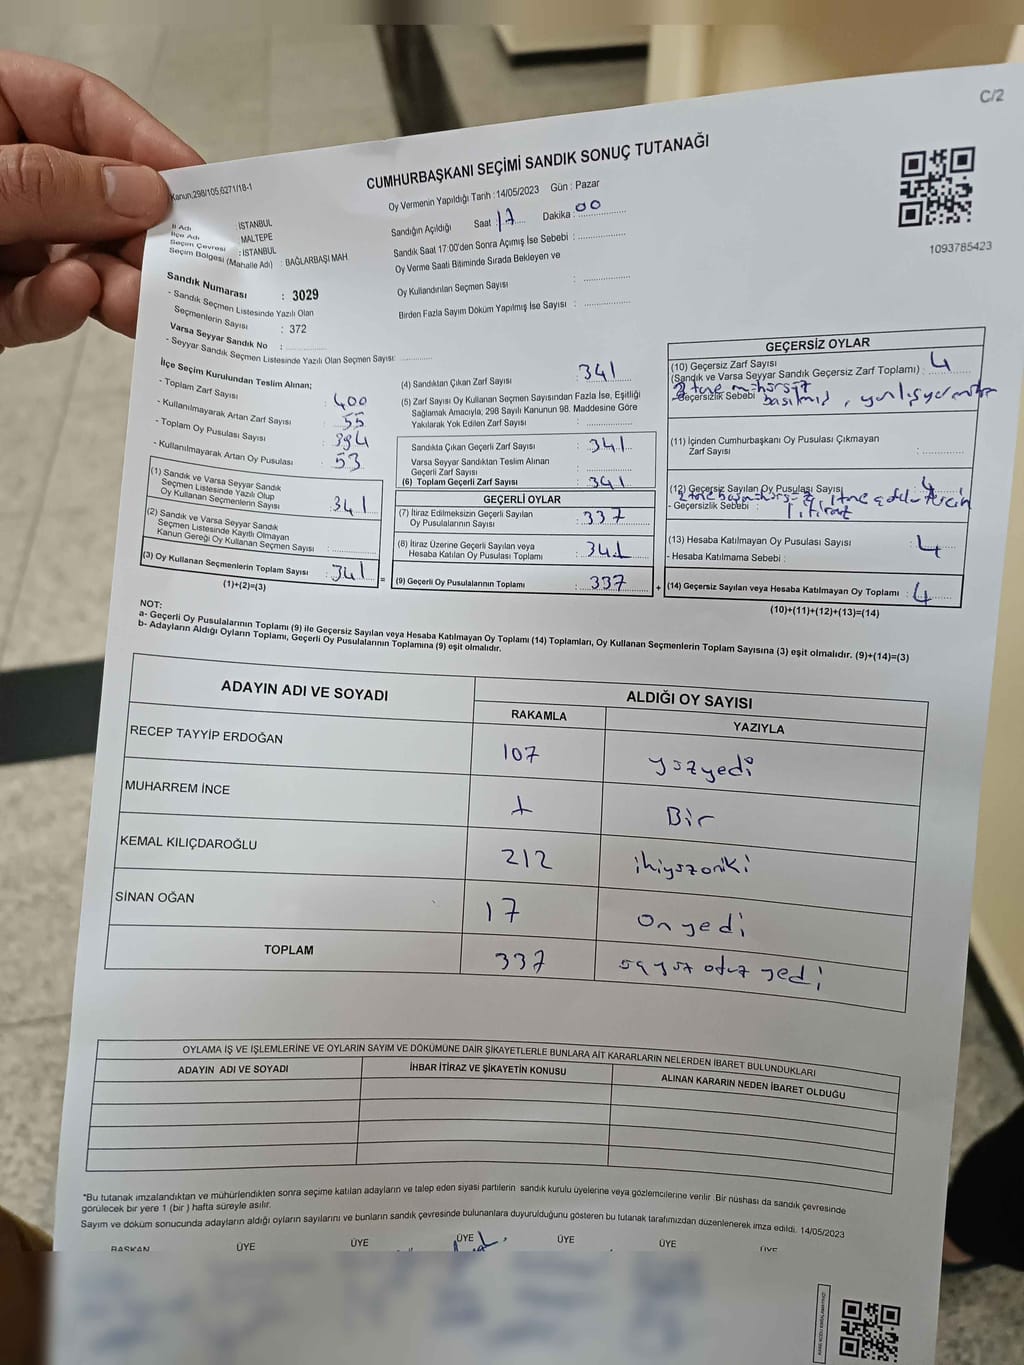 C/2
Kanun.298/105,6271/18-1
CUMHURBAŞKANI SEÇİMİ SANDIK SONUÇ TUTANAĞI
Oy Vermenin Yapıldığı Tarih : 14/05/2023 Gün : Pazar
İl Adı : İSTANBUL
İlçe Adı : MALTEPE
Seçim Çevresi : İSTANBUL
Seçim Bölgesi (Mahalle Adı) : BAĞLARBAŞI MAH.
Sandığın Açıldığı Saat : 17 Dakika : 00
Sandık Saat 17:00'den Sonra Açımış İse Sebebi :
Oy Verme Saati Bitiminde Sırada Bekleyen ve
Oy Kullandırılan Seçmen Sayısı :
Birden Fazla Sayım Döküm Yapılmış İse Sayısı :
1093785423
Sandık Numarası : 3029
- Sandık Seçmen Listesinde Yazılı Olan
Seçmenlerin Sayısı : 372
Varsa Seyyar Sandık No :
- Seyyar Sandık Seçmen Listesinde Yazılı Olan Seçmen Sayısı:
İlçe Seçim Kurulundan Teslim Alınan;
- Toplam Zarf Sayısı : 400
- Kullanılmayarak Artan Zarf Sayısı : 55
- Toplam Oy Pusulası Sayısı : 394
- Kullanılmayarak Artan Oy Pusulası : 53
(1) Sandık ve Varsa Seyyar Sandık
Seçmen Listesinde Yazılı Olup
Oy Kullanan Seçmenlerin Sayısı : 341
(2) Sandık ve Varsa Seyyar Sandık
Seçmen Listesinde Kayıtlı Olmayan
Kanun Gereği Oy Kullanan Seçmen Sayısı :
(3) Oy Kullanan Seçmenlerin Toplam Sayısı : 341
(1)+(2)=(3)
(4) Sandıktan Çıkan Zarf Sayısı : 341
(5) Zarf Sayısı Oy Kullanan Seçmen Sayısından Fazla İse, Eşitliği
Sağlamak Amacıyla, 298 Sayılı Kanunun 98. Maddesine Göre
Yakılarak Yok Edilen Zarf Sayısı :
Sandıkta Çıkan Geçerli Zarf Sayısı : 341
Varsa Seyyar Sandıktan Teslim Alınan
Geçerli Zarf Sayısı :
(6) Toplam Geçerli Zarf Sayısı : 341
GEÇERLİ OYLAR
(7) İtiraz Edilmeksizin Geçerli Sayılan
Oy Pusulalarının Sayısı : 337
(8) İtiraz Üzerine Geçerli Sayılan veya
Hesaba Katılan Oy Pusulası Toplamı : 341
= (9) Geçerli Oy Pusulalarının Toplamı : 337
GEÇERSİZ OYLAR
(10) Geçersiz Zarf Sayısı
(Sandık ve Varsa Seyyar Sandık Geçersiz Zarf Toplamı) : 4
2 tane mühürsüz
- Geçersizlik Sebebi basılmış, yanlış yere
(11) İçinden Cumhurbaşkanı Oy Pusulası Çıkmayan
Zarf Sayısı :
(12) Geçersiz Sayılan Oy Pusulası Sayısı 4
- Geçersizlik Sebebi :
(13) Hesaba Katılmayan Oy Pusulası Sayısı : 4
- Hesaba Katılmama Sebebi :
+ (14) Geçersiz Sayılan veya Hesaba Katılmayan Oy Toplamı : 4
(10)+(11)+(12)+(13)=(14)
NOT:
a- Geçerli Oy Pusulalarının Toplamı (9) ile Geçersiz Sayılan veya Hesaba Katılmayan Oy Toplamı (14) Toplamları, Oy Kullanan Seçmenlerin Toplam Sayısına (3) eşit olmalıdır. (9)+(14)=(3)
b- Adayların Aldığı Oyların Toplamı, Geçerli Oy Pusulalarının Toplamına (9) eşit olmalıdır.
ADAYIN ADI VE SOYADI ALDIĞI OY SAYISI
RAKAMLA YAZIYLA
RECEP TAYYİP ERDOĞAN 107 yüzyedi
MUHARREM İNCE 1 Bir
KEMAL KILIÇDAROĞLU 212 ikiyüzoniki
SİNAN OĞAN 17 on yedi
TOPLAM 337 üçyüz otuz yedi
OYLAMA İŞ VE İŞLEMLERİNE VE OYLARIN SAYIM VE DÖKÜMÜNE DAİR ŞİKAYETLERLE BUNLARA AİT KARARLARIN NELERDEN İBARET BULUNDUKLARI
ADAYIN ADI VE SOYADI İHBAR İTİRAZ VE ŞİKAYETİN KONUSU ALINAN KARARIN NEDEN İBARET OLDUĞU
*Bu tutanak imzalandıktan ve mühürlendikten sonra seçime katılan adayların ve talep eden siyasi partilerin sandık kurulu üyelerine veya gözlemcilerine verilir .Bir nüshası da sandık çevresinde
görülecek bir yere 1 (bir ) hafta süreyle asılır.
Sayım ve döküm sonucunda adayların aldığı oyların sayılarını ve bunların sandık çevresinde bulunanlara duyurulduğunu gösteren bu tutanak tarafımızdan düzenlenerek imza edildi. 14/05/2023
BAŞKAN ÜYE ÜYE ÜYE ÜYE ÜYE ÜYE